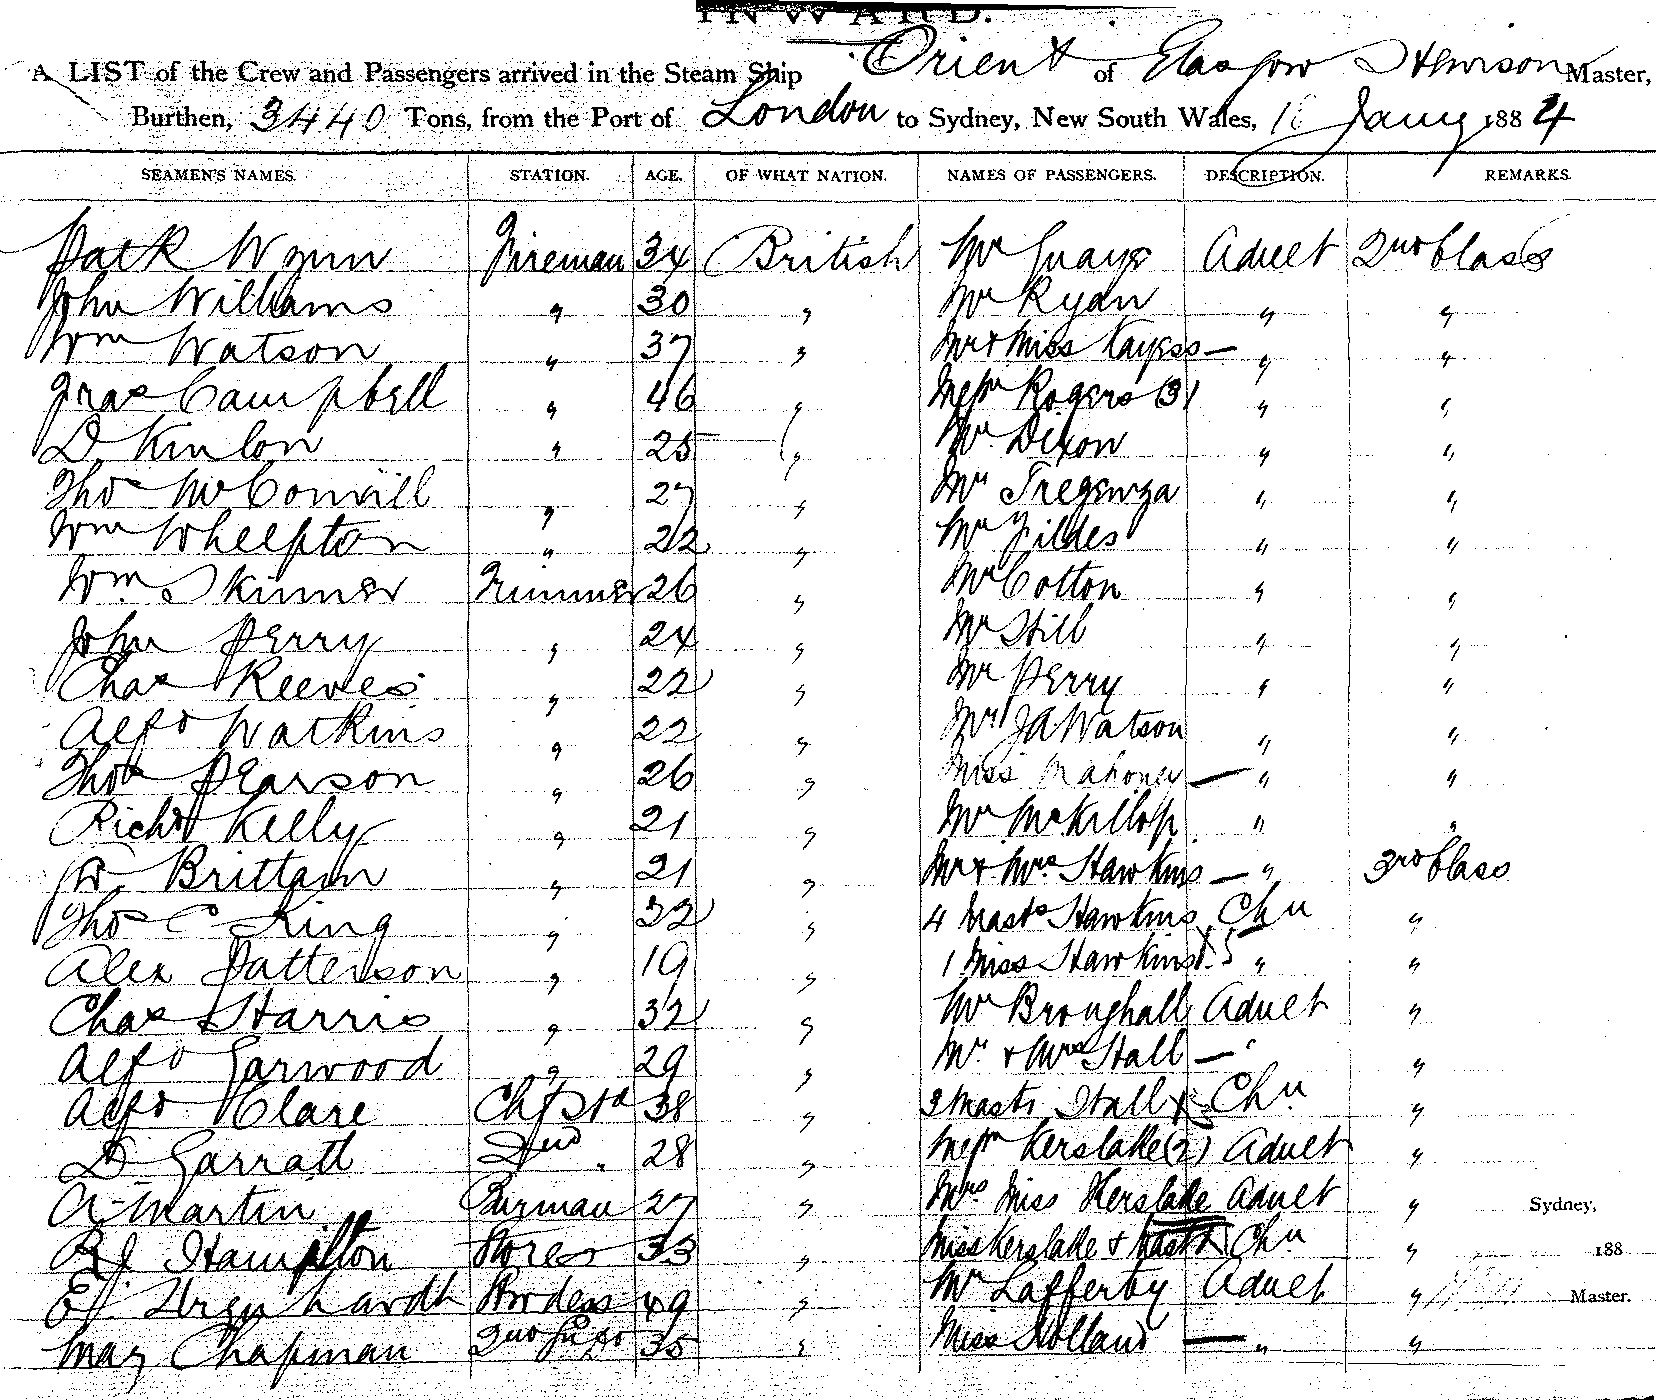 INWARD.
A LIST of the Crew and Passengers arrived in the Steam Ship Orient of Glasgow Master,
Burthen, 3440 Tons, from the Port of London to Sydney, New South Wales, Jany 1884
SEAMEN'S NAMES. STATION. AGE. OF WHAT NATION. NAMES OF PASSENGERS. DESCRIPTION. REMARKS.
Patk Wynn Fireman 34 British Mr Adult 2nd Class
John Williams " 30 " Mr Ryan " "
Wm Watson " 37 " Mr & Miss Kayess — " "
Jras Campbell " 46 " Messrs Rogers (3) " "
D. Kinlon " 25 " Mr Dixon " "
Thos McConvill " 27 " Mr Tregenza " "
Wm Whelpton " 22 " Mr Fildes " "
Wm Skinner Trimmer 26 " Mr Cotton " "
John Perry " 24 " Mr Hill " "
Chas Reeves " 22 " Mr Perry " "
Alfd Watkins " 22 " Mr JA Watson " "
Thos Pearson " 26 " Miss Mahoney — " "
Richd Kelly " 21 " Mr McKillop " "
W Brittain " 21 " Mr & Mrs Hawkins — " 3rd Class
Thos C King " 32 " 4 Masts Hawkins Chn "
Alex Patterson " 19 " 1 Miss Hawkins " "
Chas Harris " 32 " Mr Broughall Adult "
Alfd Garwood " 29 " Mr & Mrs Hall — " "
Alfd Clare Ch Std 38 " 3 Masts Hall Chn "
D Garratt 2nd " 28 " Messrs Kerslake (2) Adult "
A Martin Barman 27 " Mrs Miss Kerslake Adult " Sydney,
RJ Hampton Stores 33 " Miss Kerslake & Mast Chn " 188
E 49 " Mr Lafferty Adult " Master.
May Chapman 35 " Miss Holland — " "